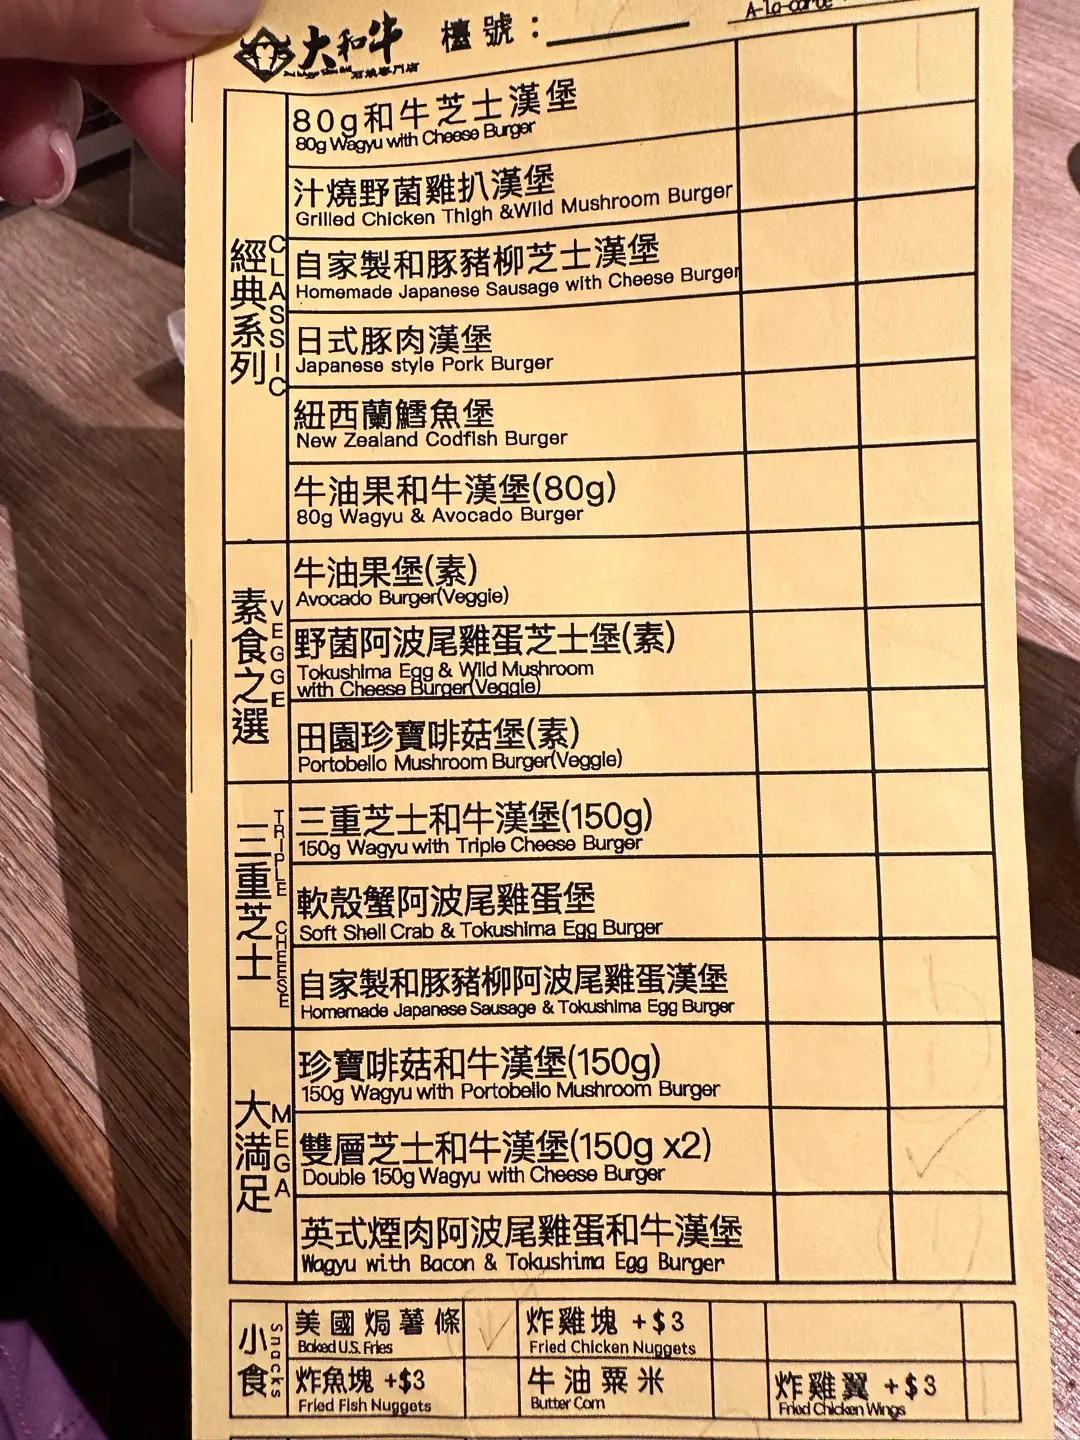 大和牛 檯號：
石燒專門店
A-la-carte
經典系列 CLASSIC
80g和牛芝士漢堡
80g Wagyu with Cheese Burger
汁燒野菌雞扒漢堡
Grilled Chicken Thigh &Wild Mushroom Burger
自家製和豚豬柳芝士漢堡
Homemade Japanese Sausage with Cheese Burger
日式豚肉漢堡
Japanese style Pork Burger
紐西蘭鱈魚堡
New Zealand Codfish Burger
牛油果和牛漢堡(80g)
80g Wagyu & Avocado Burger
素食之選 VEGGE
牛油果堡(素)
Avocado Burger(Veggie)
野菌阿波尾雞蛋芝士堡(素)
Tokushima Egg & Wild Mushroom
with Cheese Burger(Veggie)
田園珍寶啡菇堡(素)
Portobello Mushroom Burger(Veggie)
三重芝士 TRIPLE CHEESE
三重芝士和牛漢堡(150g)
150g Wagyu with Triple Cheese Burger
軟殼蟹阿波尾雞蛋堡
Soft Shell Crab & Tokushima Egg Burger
自家製和豚豬柳阿波尾雞蛋漢堡
Homemade Japanese Sausage & Tokushima Egg Burger
大滿足 MEGA
珍寶啡菇和牛漢堡(150g)
150g Wagyu with Portobello Mushroom Burger
雙層芝士和牛漢堡(150g x2)
Double 150g Wagyu with Cheese Burger
英式煙肉阿波尾雞蛋和牛漢堡
Wagyu with Bacon & Tokushima Egg Burger
小食 Snacks
美國焗薯條 炸雞塊 +$3
Baked U.S. Fries Fried Chicken Nuggets
炸魚塊 +$3 牛油粟米 炸雞翼 +$3
Fried Fish Nuggets Butter Corn Fried Chicken Wings